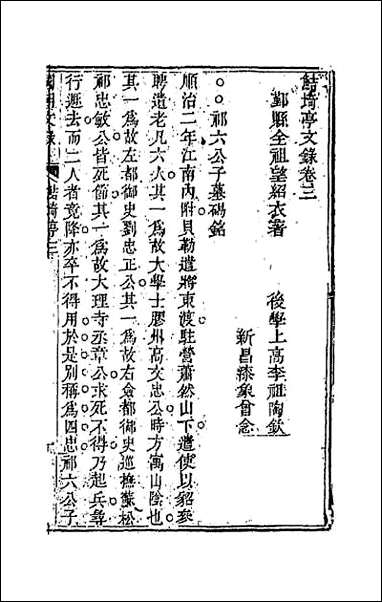 鮚埼亭文錄卷三
鄞縣全祖望紹衣著　後學上高李祖陶
新昌漆象曾
○○祁六公子墓碣銘
順治二年江南內附貝勒遣將東渡駐營蕭然山下遣使以貂裘
聘遺老凡六人其一爲故大學士膠州高文忠公時方寓山陰也
其一爲故左都御史劉忠正公其一爲故右僉都御史巡撫蘇松
祁忠敏公皆死節其一爲故大理寺丞章公求死不得乃起兵尋
行遯去而二人者竟降亦卒不得用於是別稱爲四忠祁六公子
國朝文錄
鮚埼亭三